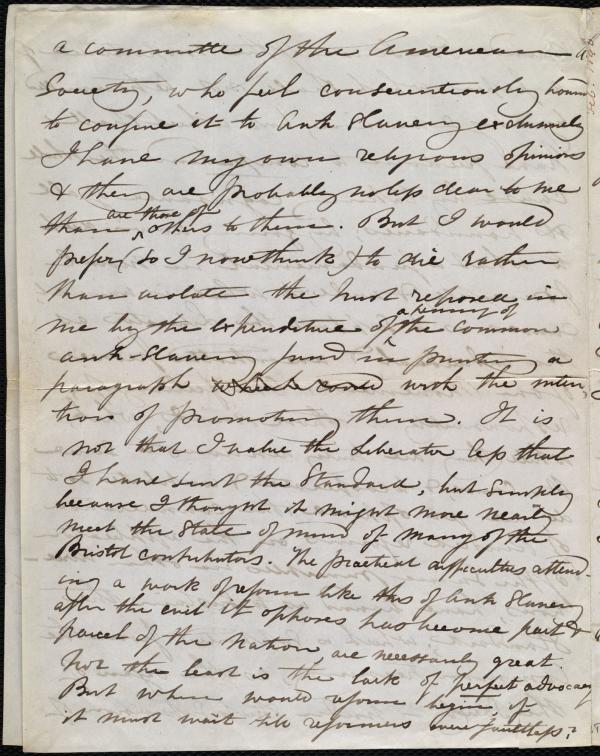 a committe of the American a
Society, who feel conscientiously bound
to confine it to Anti Slavery exclusively
I have my own religious opinions
& they are probably no less dear to me
than are those of others to them. But I would
prefer (so I now think) to die rather
than violate the trust reposed in
me by the expenditure of a penny of the common
anti-Slavery fund in printing a
paragraph with the inten-
tion of promoting them. It is
not that I value the Liberator less that
I have sent the Standard, but simply
because I thought it might more nearly
meet the state of mind of many of the
Bristol contributors. The practical difficulties attend-
ing a work of reform like this of Anti Slavery
after the evil it opposes has become part &
parcel of the Nation are necessarily great.
Not the least is the lack of perfect advocacy
But when would reform begin, if
it must wait till reformers were faultless?